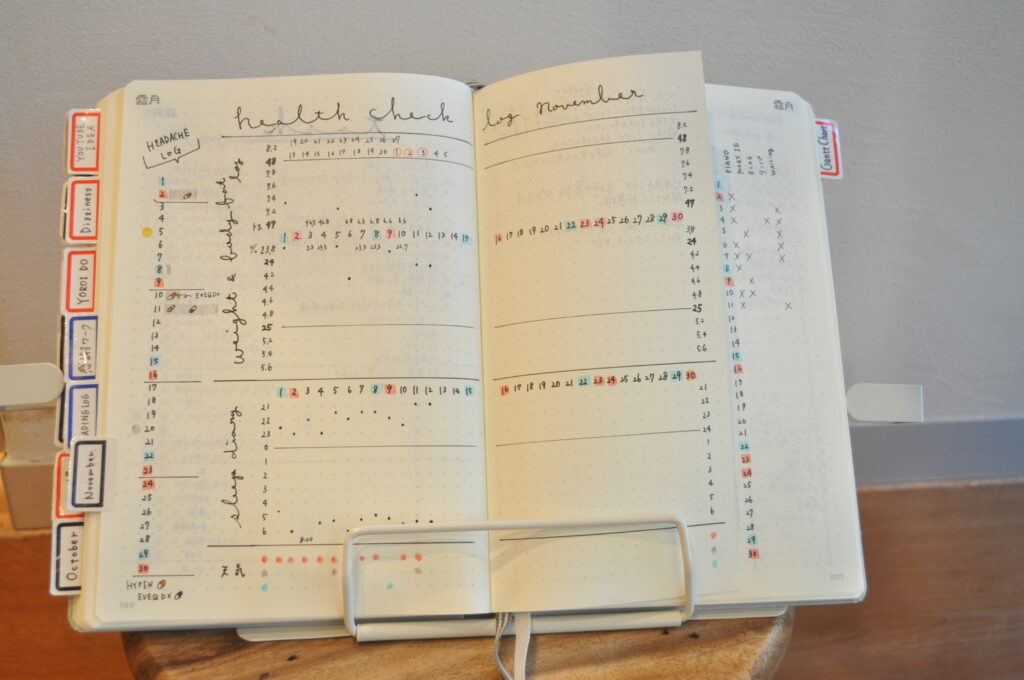 霜月
health check
log November
霜月
HEADACHE
LOG
19 20 21 22 23 24 25 26 27
13 14 15 16 17 18 19 20 1 2 3 4 5
YOUTUBE
IDEA
Dizziness
YOROI DO
November
October
Gantt Chart
weight & body fat
log
8.2
48
7.8
7.6
7.4
7.2
47
% 23.8
24
4.2
4.4
4.6
4.8
25
5.2
5.4
5.6
1 2 3 4 5 6 7 8 9 10 11 12 13 14 15
8.2
48
7.8
7.6
7.4
7.2
47
16 17 18 19 20 21 22 23 24 25 26 27 28 29 30
24
4.2
4.4
4.6
4.8
25
5.2
5.4
5.6
1
2
3
4
5
6
7
8
9
10 EVEQDX
11
12
13
14
15
16
17
18
19
20
21
22
23
24
25
26
27
28
29
30
HYPEN
EVEQDX
196
sleep diary
1 2 3 4 5 6 7 8 9 10 11 12 13 14 15
21
22
23
0
1
2
3
4
5
6
8:00
天気
16 17 18 19 20 21 22 23 24 25 26 27 28 29 30
21
22
23
24
1
2
3
4
5
6
PIANO
BLOG
1
2
3
4
5
6
7
8
9
10
11
12
13
14
15
16
17
18
19
20
21
22
23
24
25
26
27
28
29
30
201